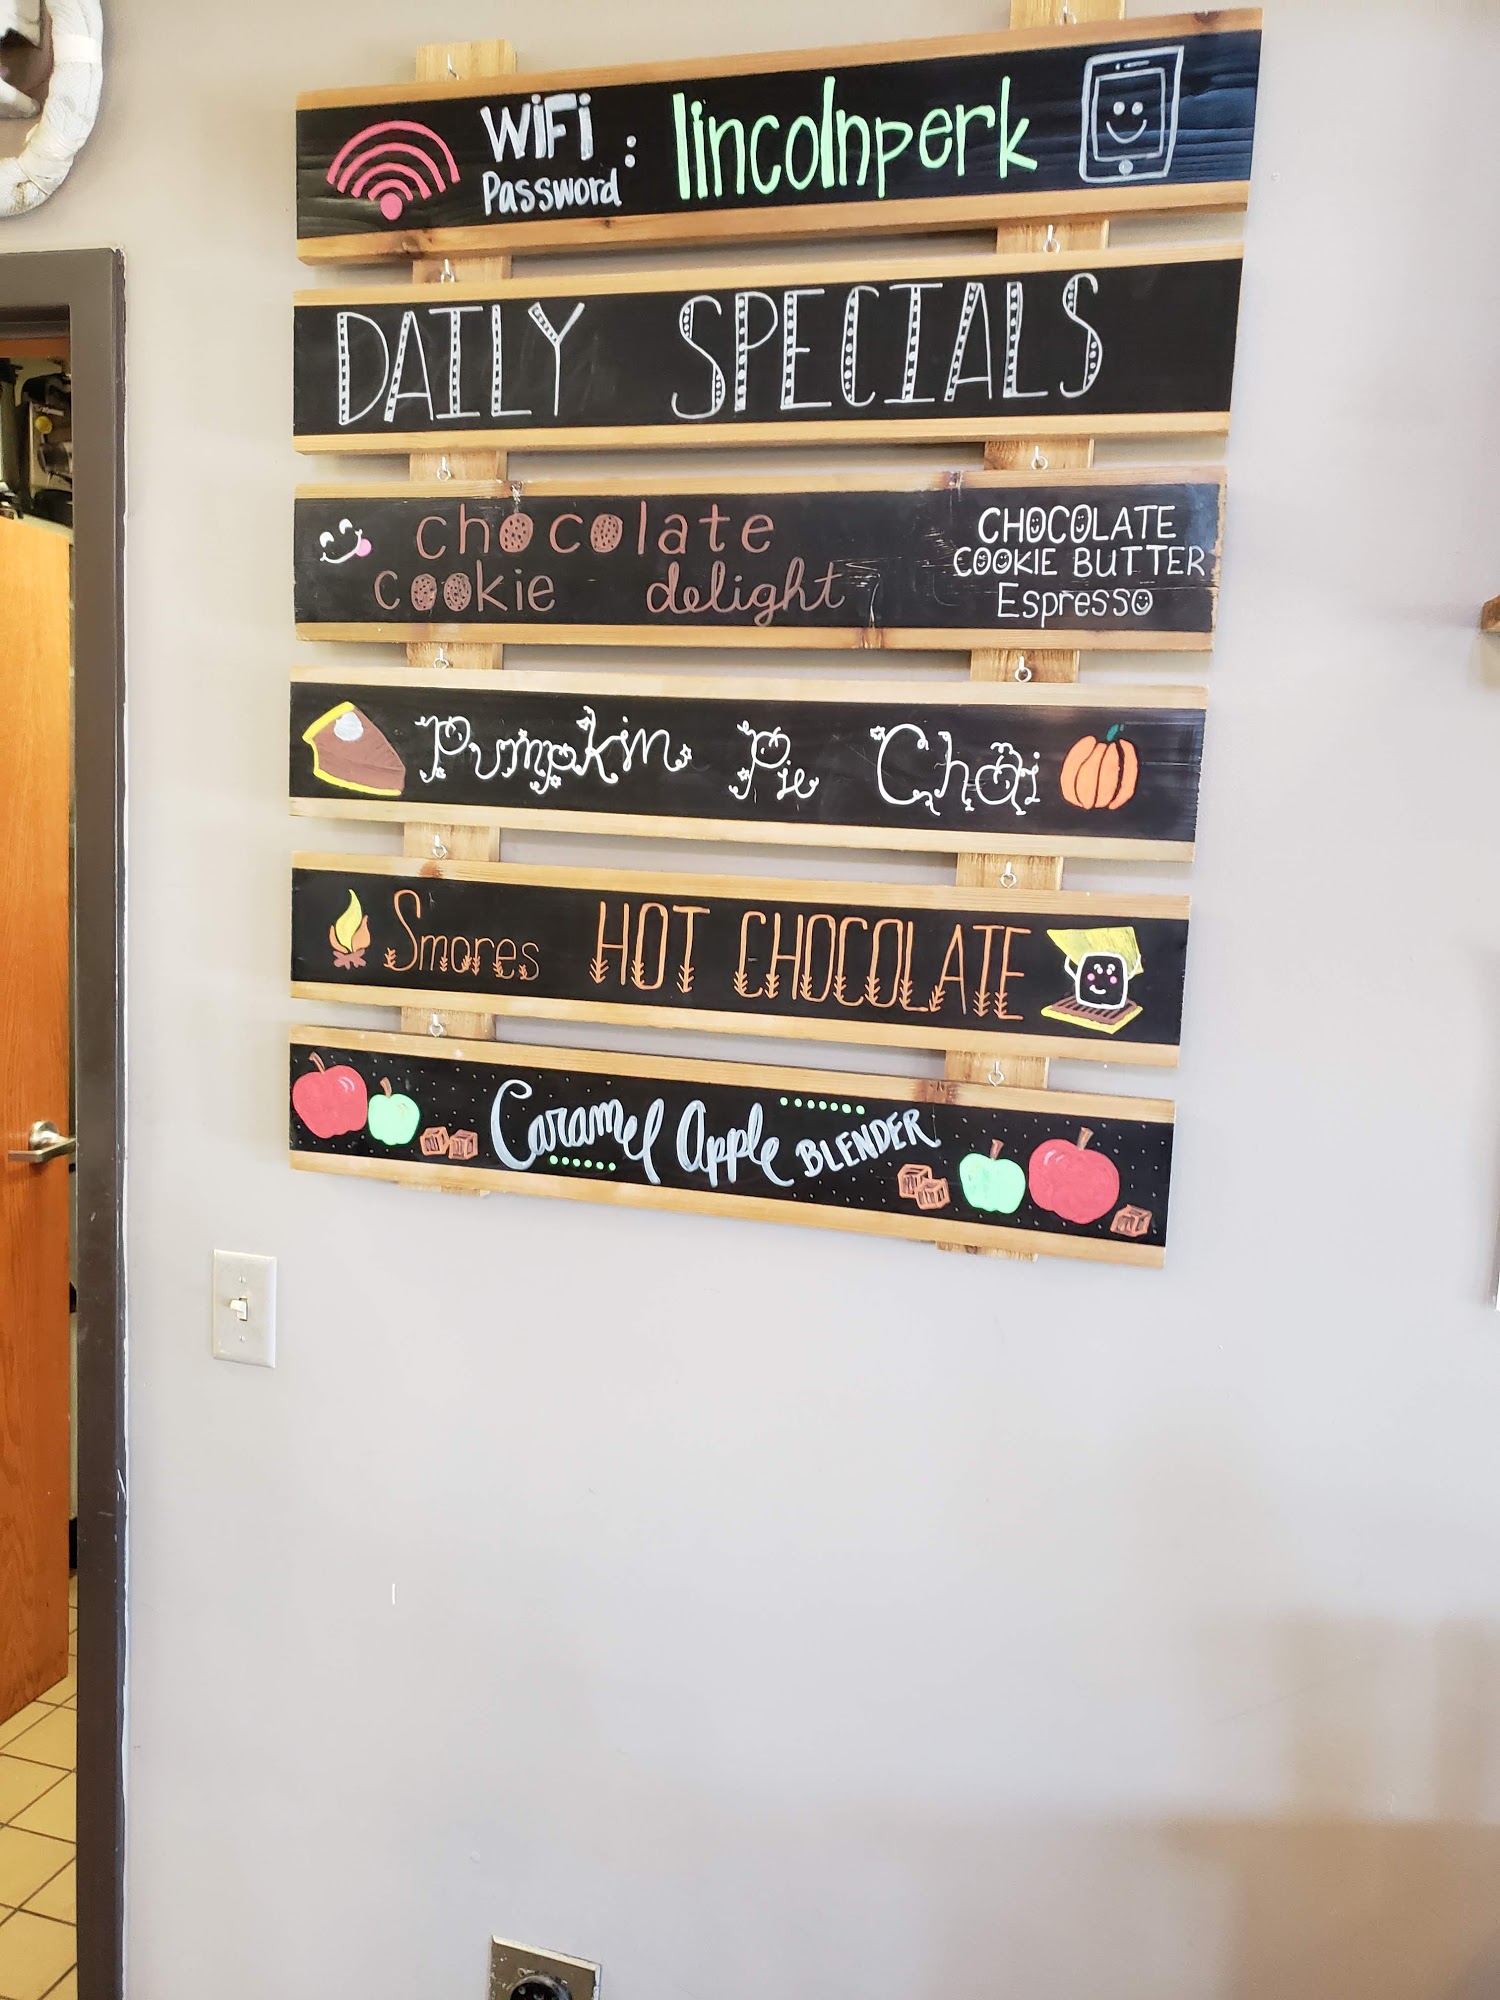 WiFi Password : lincolnperk
DAILY SPECIALS
chocolate
cookie delight
CHOCOLATE
COOKIE BUTTER
Espresso
Pumpkin Pie Chai
Smores HOT CHOCOLATE
Caramel Apple BLENDER